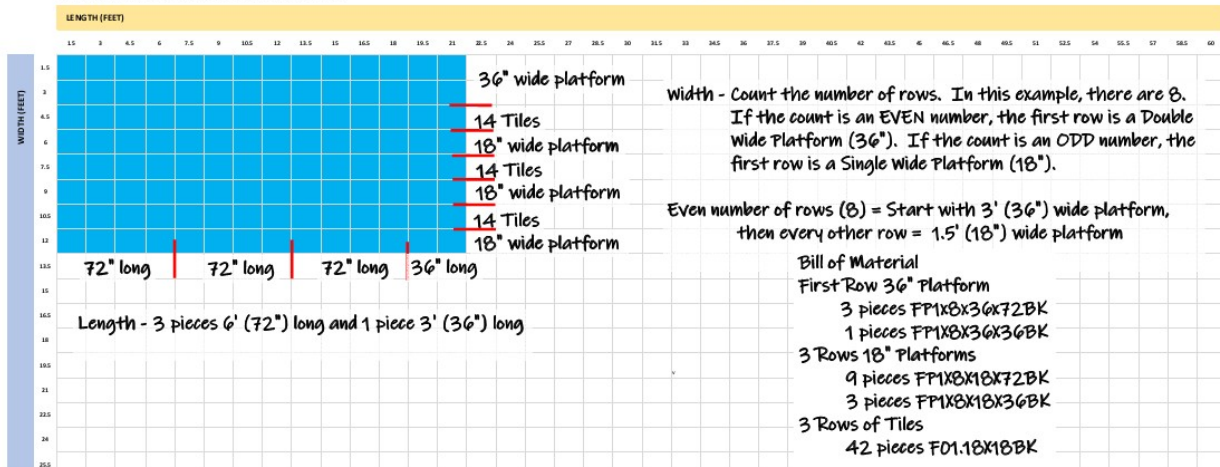 LENGTH (FEET)
1.5 3 4.5 6 7.5 9 10.5 12 13.5 15 16.5 18 19.5 21 22.5 24 25.5 27 28.5 30 31.5 33 34.5 36 37.5 39 40.5 42 43.5 45 46.5 48 49.5 51 52.5 54 55.5 57 58.5 60
WIDTH (FEET)
1.5
3
4.5
6
7.5
9
10.5
12
13.5
15
16.5
18
19.5
21
22.5
24
25.5
36" wide platform
14 Tiles
18" wide platform
14 Tiles
18" wide platform
14 Tiles
18" wide platform
72" long 72" long 72" long 36" long
Length - 3 pieces 6' (72") long and 1 piece 3' (36") long
Width - Count the number of rows. In this example, there are 8.
If the count is an EVEN number, the first row is a Double
Wide Platform (36"). If the count is an ODD number, the
first row is a Single Wide Platform (18").
Even number of rows (8) = Start with 3' (36") wide platform,
then every other row = 1.5' (18") wide platform
Bill of Material
First Row 36" Platform
3 pieces FP1X8X36X72BK
1 pieces FP1X8X36X36BK
3 Rows 18" Platforms
9 pieces FP1X8X18X72BK
3 pieces FP1X8X18X36BK
3 Rows of Tiles
42 pieces F01.18X18BK